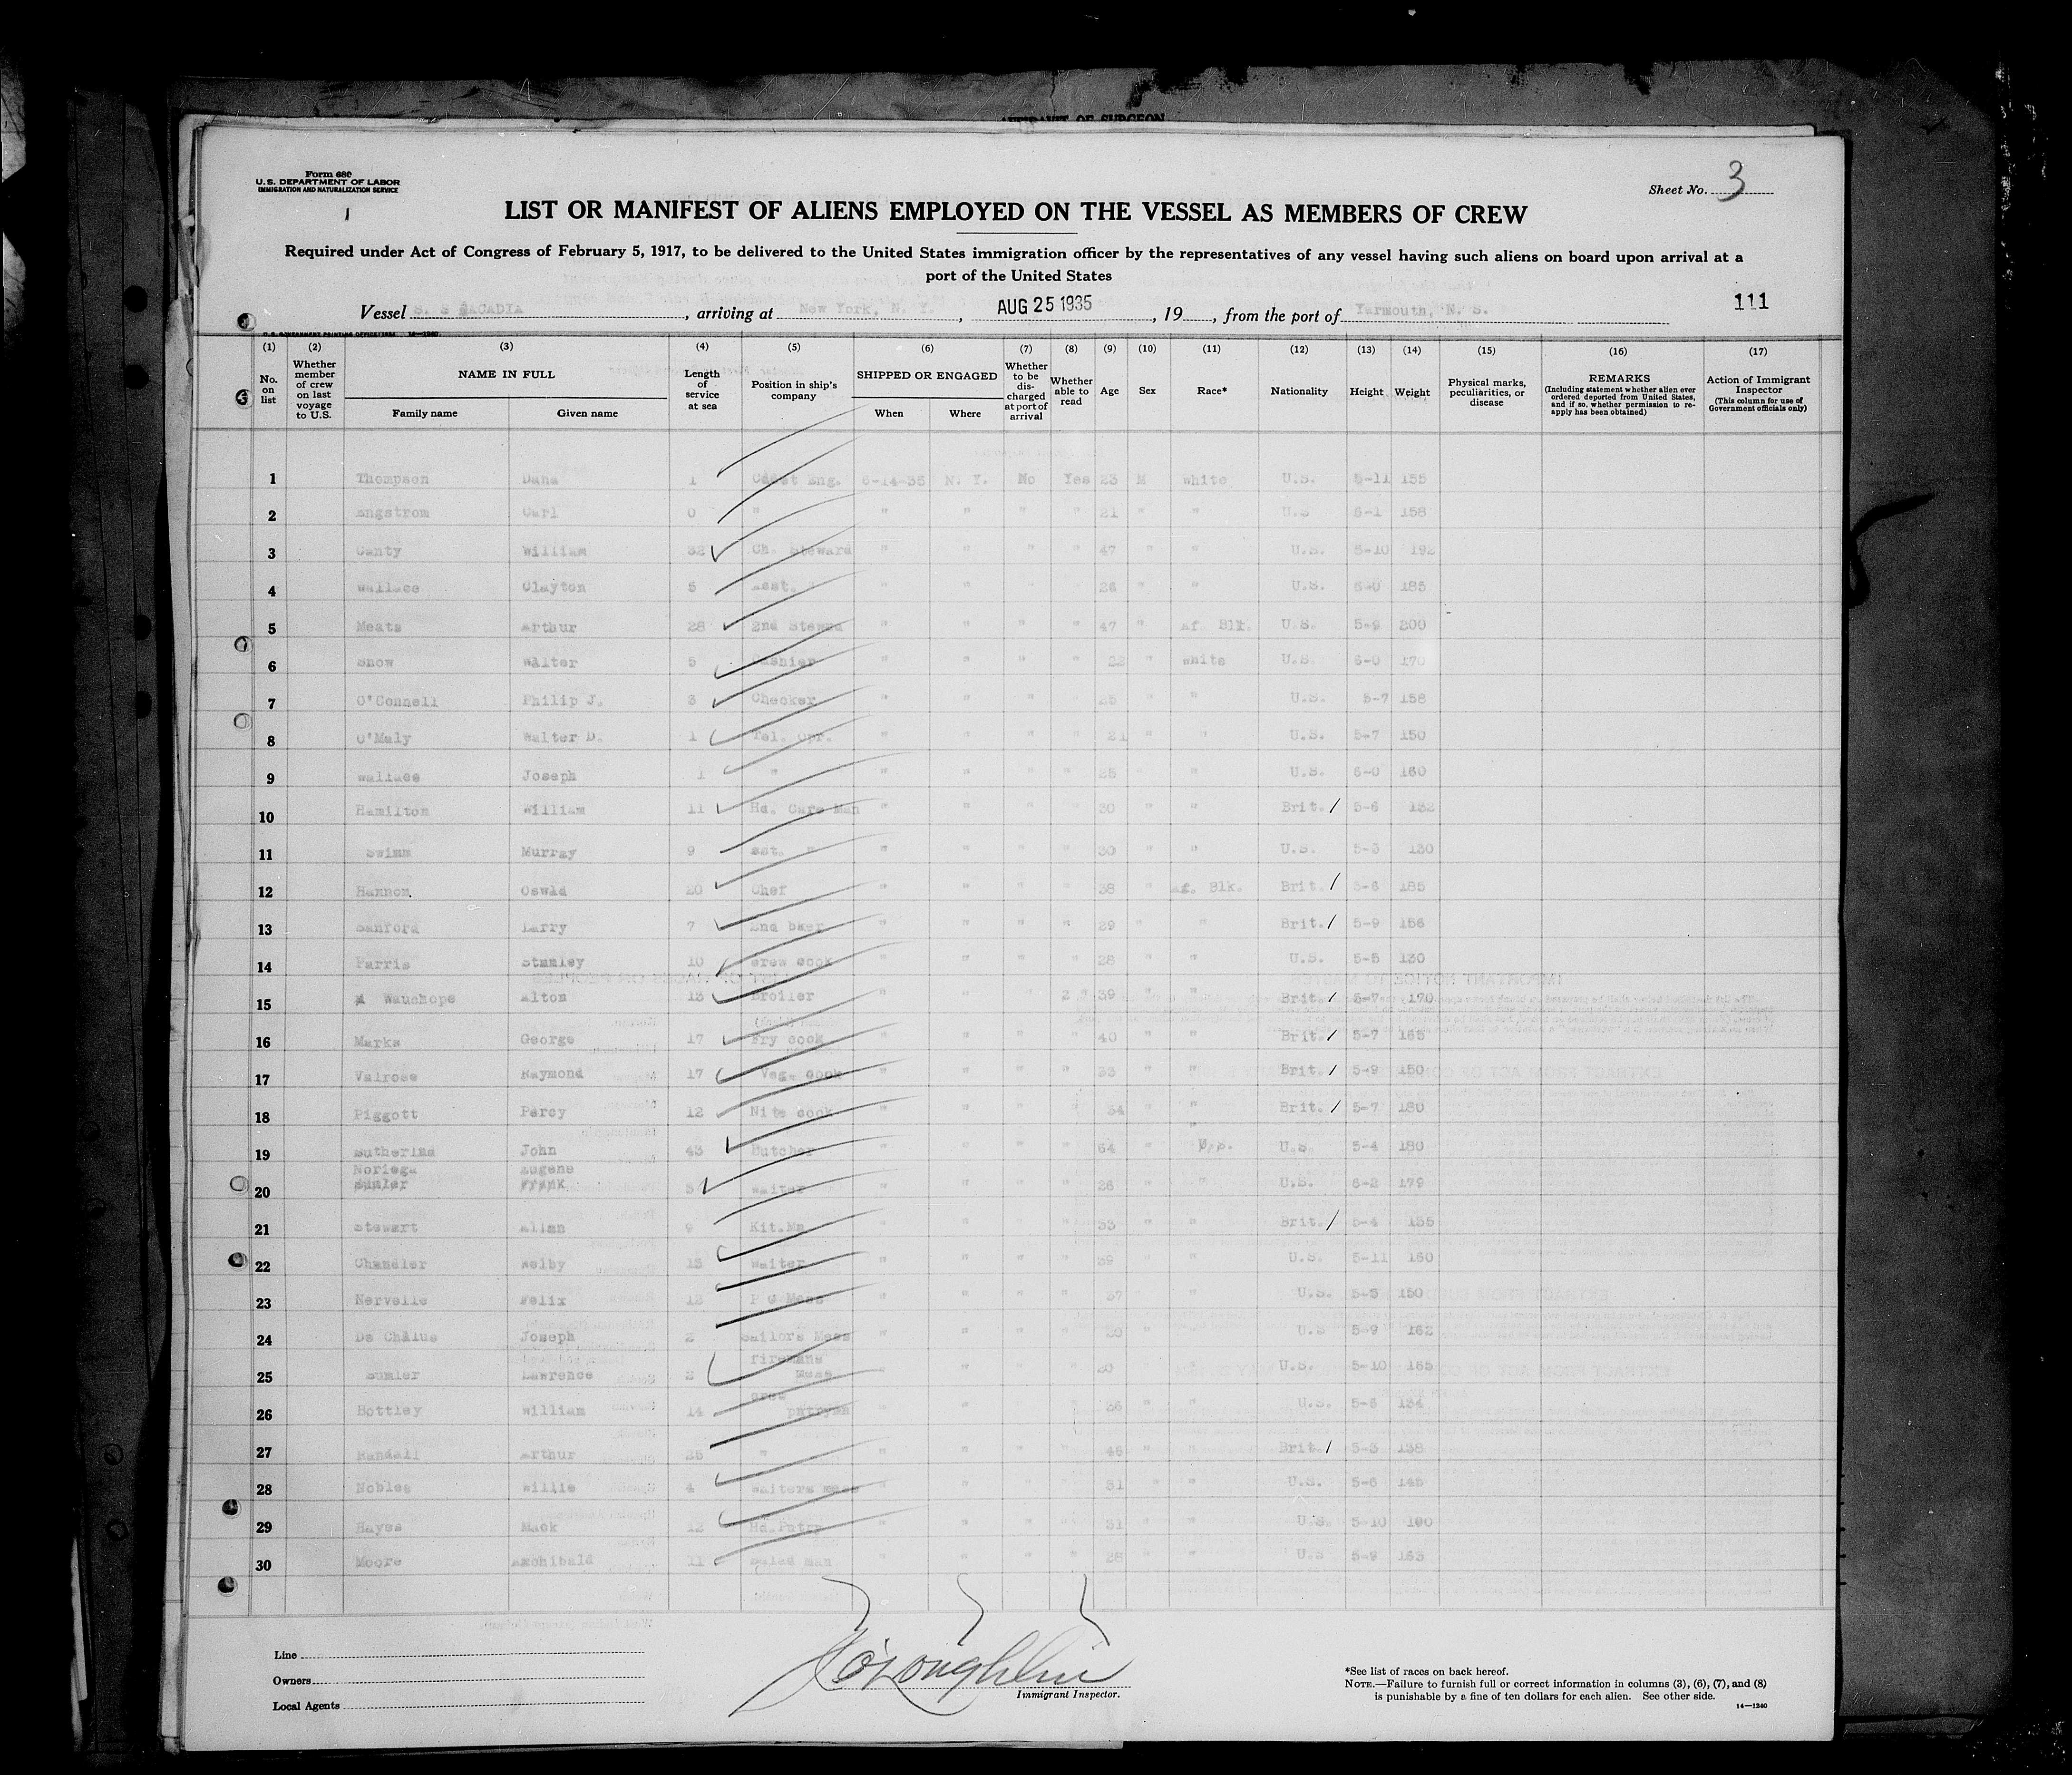 AFFIDAVIT OF SURGEON
Form 680
U. S. DEPARTMENT OF LABOR
IMMIGRATION AND NATURALIZATION SERVICE
1
Sheet No. 3
LIST OR MANIFEST OF ALIENS EMPLOYED ON THE VESSEL AS MEMBERS OF CREW
Required under Act of Congress of February 5, 1917, to be delivered to the United States immigration officer by the representatives of any vessel having such aliens on board upon arrival at a
port of the United States
Vessel S. S ACADIA, arriving at New York, N. Y., AUG 25 1935, 19, from the port of Yarmouth, N. S. 111
(1) (2) (3) (4) (5) (6) (7) (8) (9) (10) (11) (12) (13) (14) (15) (16) (17)
No. on list
Whether member of crew on last voyage to U.S.
NAME IN FULL
Family name Given name
Length of service at sea
Position in ship's company
SHIPPED OR ENGAGED
When Where
Whether to be discharged at port of arrival
Whether able to read
Age
Sex
Race*
Nationality
Height
Weight
Physical marks, peculiarities, or disease
REMARKS
(Including statement whether alien ever ordered deported from United States, and if so, whether permission to reapply has been obtained)
Action of Immigrant Inspector
(This column for use of Government officials only)
1 Thompson Dana 1 Cadet Eng. 6-14-35 N. Y. No Yes 23 M White U.S. 5-11 155
2 Engstrom Carl 0 " " " " " 21 " " U.S 6-1 158
3 Canty William 32 Ch. Steward " " " " 47 " " U.S. 5-10 192
4 Wallace Clayton 5 Asst. " " " " " 26 " " U.S. 6-0 185
5 Meats Arthur 28 2nd Stewrd " " " " 47 " Af. Blk. U.S. 5-9 200
6 Snow Walter 5 Cashier " " " " 22 " White U.S. 6-0 170
7 O'Connell Philip J. 3 Checker " " " " 25 " U.S. 5-7 158
8 O'Maly Walter D. 1 Tel. Opr. " " " " 21 " U.S. 5-7 150
9 Wallace Joseph 1 " " " " " 25 " " U.S. 6-0 160
10 Hamilton William 11 Hd. Care Man " " " " 30 " " Brit. / 5-6 132
11 Swimm Murray 9 Ast. " " " " " 30 " " U.S. 5-3 130
12 Hannon Oswld 20 Chef " " " " 38 " Af. Blk. Brit. / 5-6 185
13 Sanford Larry 7 2nd bker " " " " 29 " " Brit. / 5-9 156
14 Parris Stanley 10 crew cook " " " " 28 " " U.S. 5-5 130
15 Wauchope Alton 13 Broiler " " " 2 " 39 " " Brit. / 5-7 170
16 Marks George 17 Fry cook " " " " 40 " " Brit. / 5-7 165
17 Valrose Raymond 17 Veg. cook " " " " 33 " " Brit. / 5-9 150
18 Piggott Percy 12 Nite cook " " " " 34 " " Brit. / 5-7 180
19 Sutherlnd John 43 Butcher " " " " 64 " U.S. 5-4 180
Noriega Eugene
20 Sumler Frank 5 waiter " " " " 26 " " U.S. 6-2 179
21 Stewart Allan 9 Kit.Mn " " " " 33 " " Brit. / 5-4 135
22 Chandler Welby 15 Waiter " " " " 39 " " U.S. 5-11 160
23 Nervelle Felix 12 P O Mess " " " " 37 " " U.S. 5-5 150
24 De Chalus Joseph 2 Sailors Mess " " " " 30 " " U.S 5-9 162
firemans
25 Sumler Lawrence 2 Mess " " " " 20 " " U.S. 5-10 165
crew
26 Bottley William 14 pntrymn " " " " 36 " " U.S. 5-6 134
27 Randall Arthur 25 " " " " " 46 " " Brit. / 5-3 138
28 Nobles Willie 4 Waiters mess " " " " 31 " " U.S. 5-6 145
29 Hayes Mack 12 Hd.Pntry " " " " 31 " " U.S. 5-10 190
30 Moore Archibald 11 Salad man " " " " 28 " " U.S 5-9 153
Line
Owners
Local Agents
O'Loughlin
Immigrant Inspector.
*See list of races on back hereof.
NOTE.—Failure to furnish full or correct information in columns (3), (6), (7), and (8)
is punishable by a fine of ten dollars for each alien. See other side.
14—1240